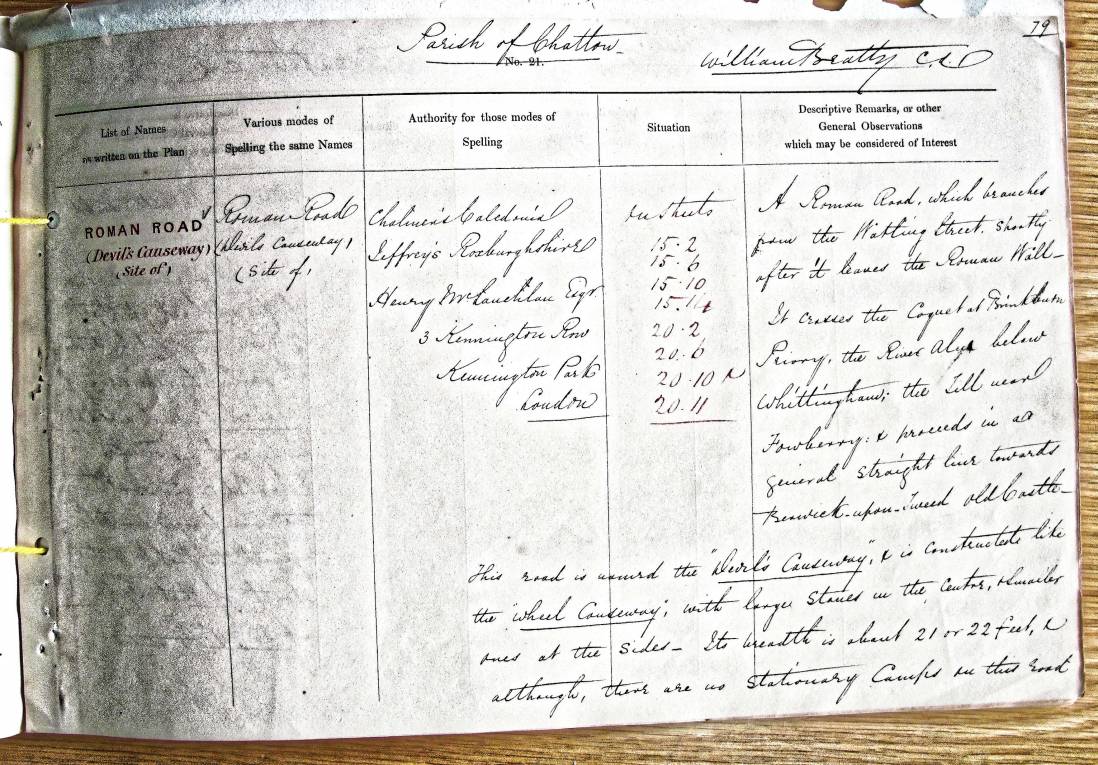 79
Parish of Chatton
No. 21.
William Beatty C.A
List of Names
as written on the Plan
Various modes of
Spelling the same Names
Authority for those modes of
Spelling
Situation
Descriptive Remarks, or other
General Observations
which may be considered of Interest
ROMAN ROAD
(Devil's Causeway)
(Site of)
Roman Road
(Devils Causeway)
(Site of)
Chalmers Caledonia
Jeffrey's Roxburghshire
Henry McLauchlan Esqr.
3 Kennington Row
Kennington Park
London
On Sheets
15.2
15.6
15.10
15.14
20.2
20.6
20.10 &
20.11
A Roman Road, which branches
from the Watling Street, shortly
after it leaves the Roman Wall –
It crosses the Coquet at Brinkburn
Priory, the River Alne below
Whittingham; the Till near
Fowberry: & proceeds in a
general straight line towards
Berwick-upon-Tweed old Castle –
This road is named the "Devil's Causeway", & is constructed like
the "Wheel Causeway", with large stones in the centre, & smaller
ones at the sides – Its breadth is about 21 or 22 feet, &
although, there are no Stationary Camps on this road